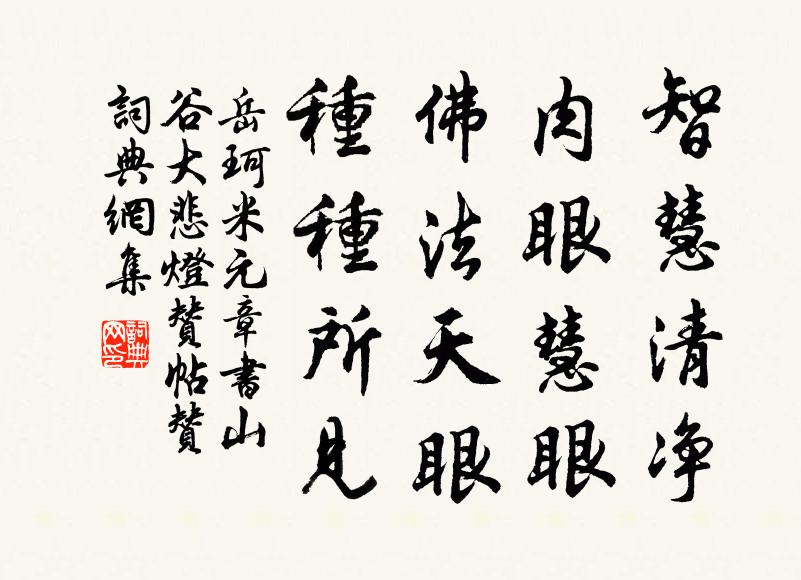 智慧清净
肉眼慧眼
佛法天眼
種種所見
岳珂米元章書山
谷大悲燈贊帖贊
詞典網集
詞典
网印